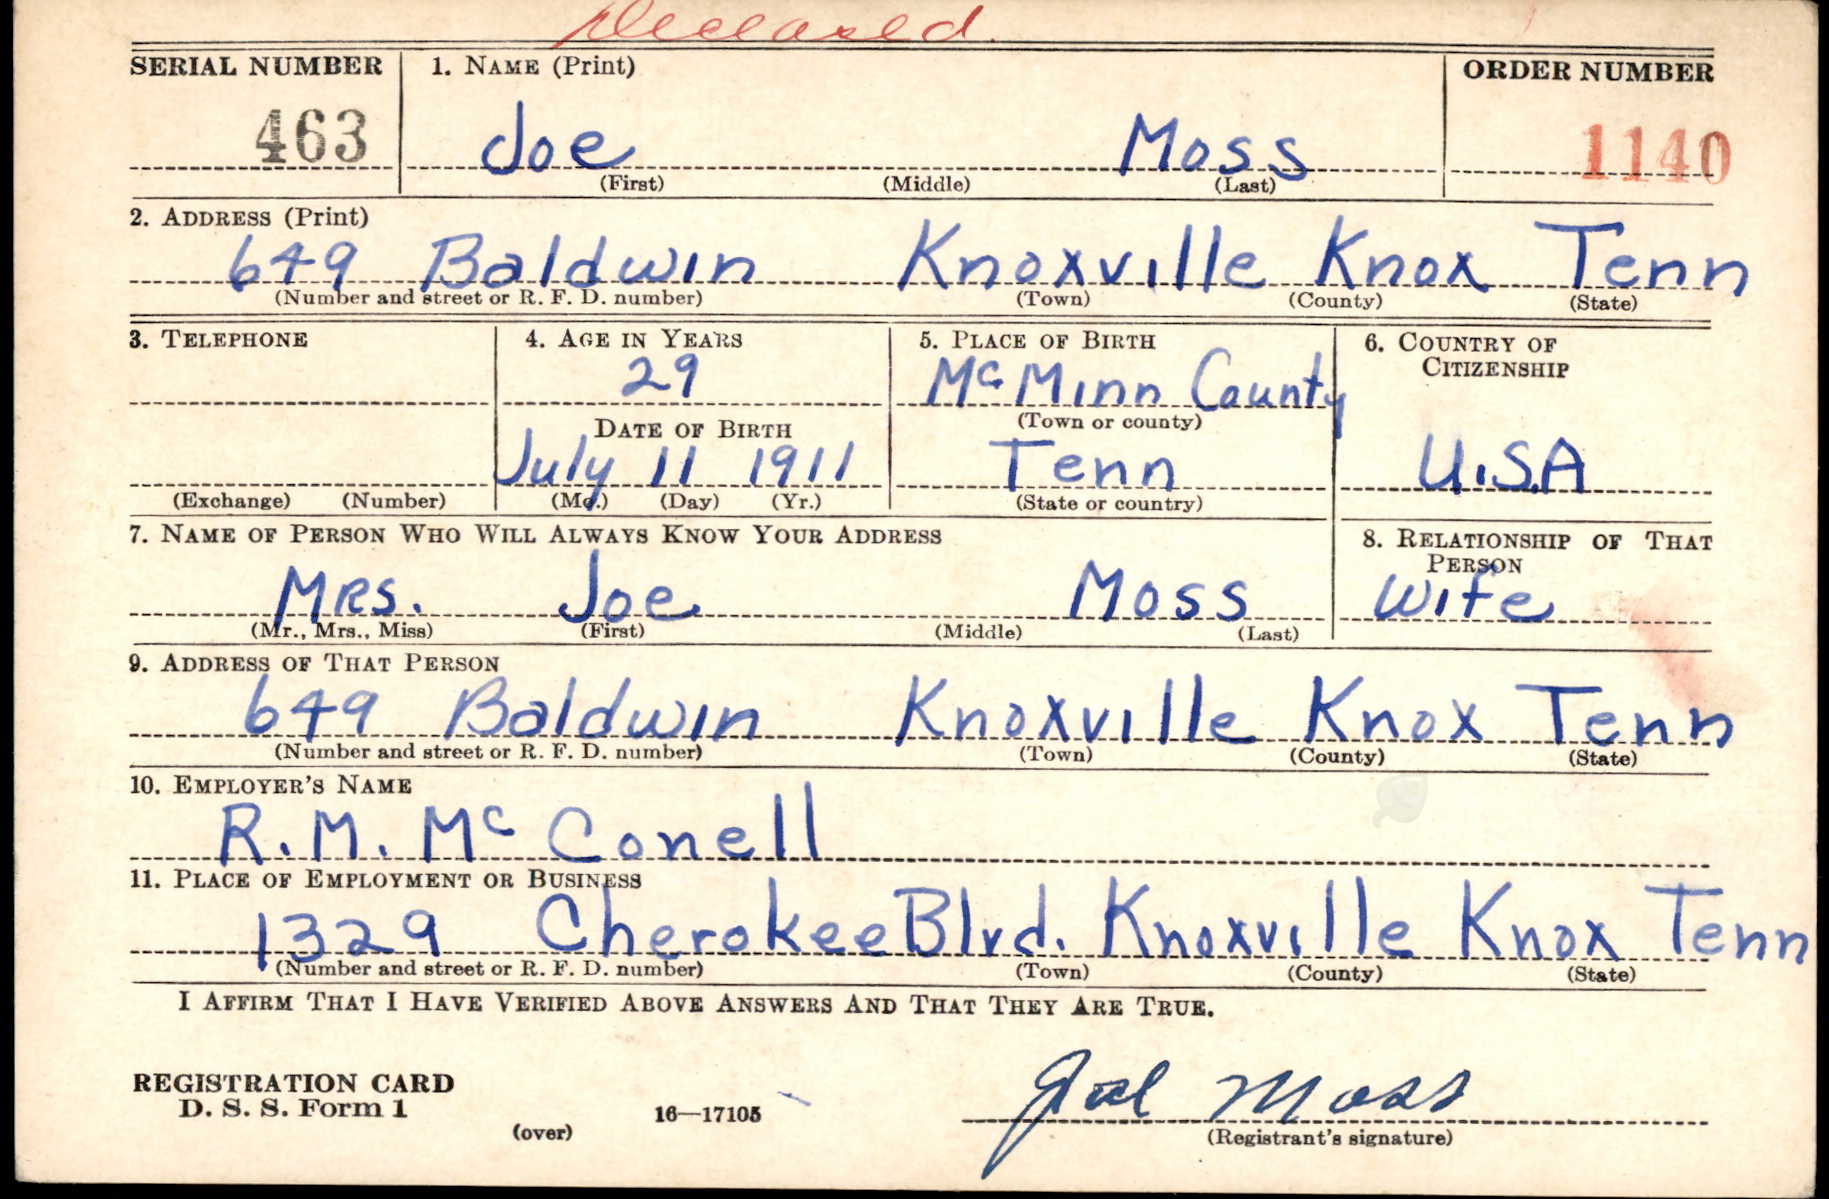 Deceased.
SERIAL NUMBER 1. NAME (Print) ORDER NUMBER
463 Joe Moss 1140
(First) (Middle) (Last)
2. ADDRESS (Print)
649 Baldwin Knoxville Knox Tenn
(Number and street or R. F. D. number) (Town) (County) (State)
3. TELEPHONE 4. AGE IN YEARS 5. PLACE OF BIRTH 6. COUNTRY OF
CITIZENSHIP
29 McMinn County
(Town or county)
DATE OF BIRTH
July 11 1911 Tenn U.S.A
(Exchange) (Number) (Mo.) (Day) (Yr.) (State or country)
7. NAME OF PERSON WHO WILL ALWAYS KNOW YOUR ADDRESS 8. RELATIONSHIP OF THAT
PERSON
Mrs. Joe Moss Wife
(Mr., Mrs., Miss) (First) (Middle) (Last)
9. ADDRESS OF THAT PERSON
649 Baldwin Knoxville Knox Tenn
(Number and street or R. F. D. number) (Town) (County) (State)
10. EMPLOYER'S NAME
R.M. Mc Conell
11. PLACE OF EMPLOYMENT OR BUSINESS
1329 Cherokee Blvd. Knoxville Knox Tenn
(Number and street or R. F. D. number) (Town) (County) (State)
I AFFIRM THAT I HAVE VERIFIED ABOVE ANSWERS AND THAT THEY ARE TRUE.
REGISTRATION CARD
D. S. S. Form 1 16—17105 Joe Moss
(over) (Registrant's signature)